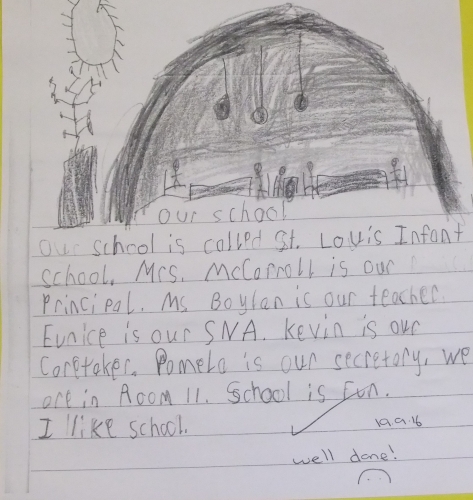 our school
Our school is called St. Louis Infant
School. Mrs. McCarroll is our
Principal. Ms Boylan is our teacher.
Eunice is our SNA. Kevin is our
Caretaker. Pamela is our secretary. we
are in Room 11. School is Fun.
I like school.
19.9.16
well done!